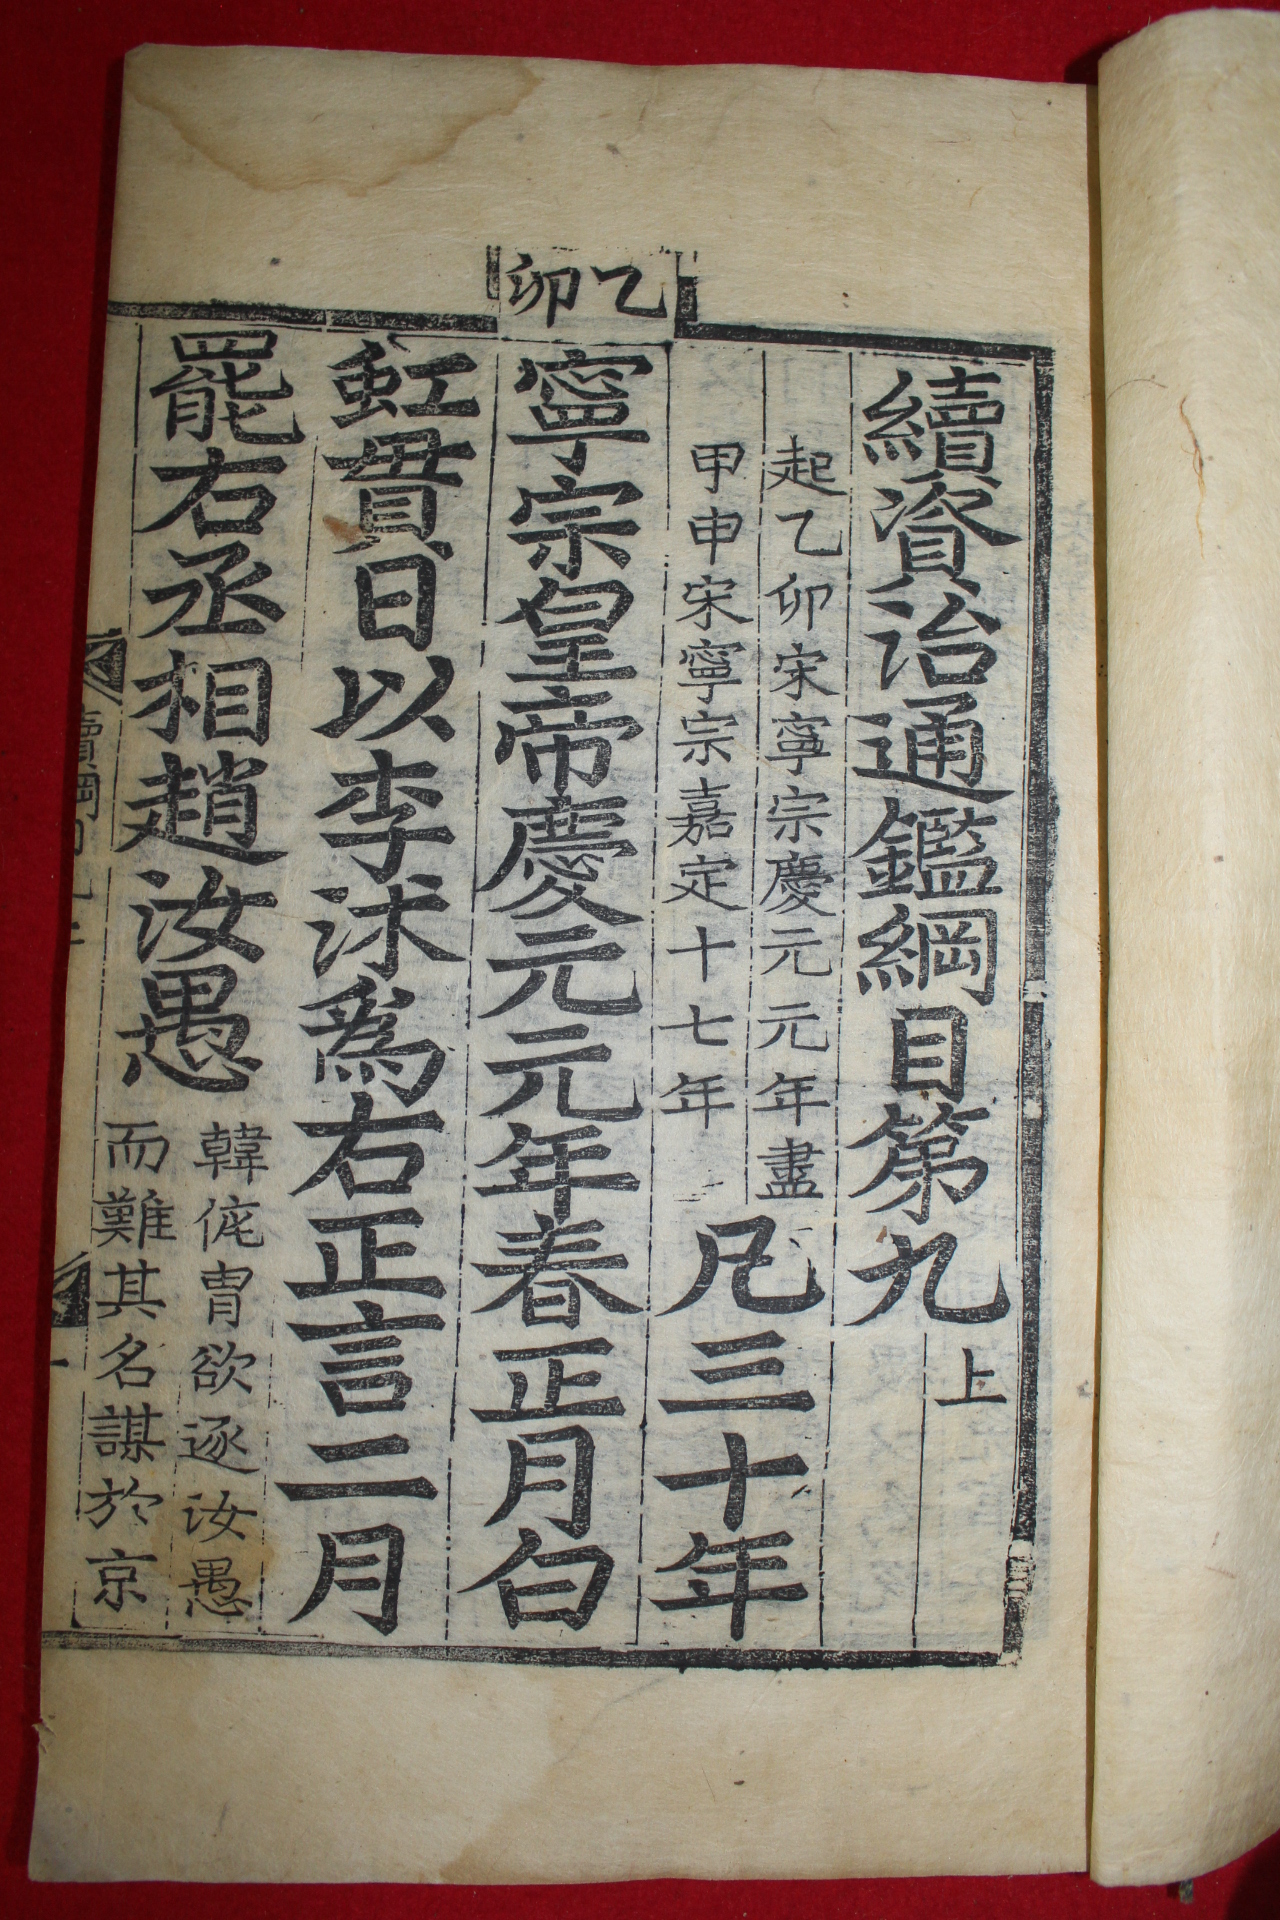 續資治通鑑綱目第九 上
起乙卯宋寧宗慶元元年盡
甲申宋寧宗嘉定十七年
凡三十年
乙卯
寧宗皇帝慶元元年春正月白
虹貫日以李沐爲右正言二月
罷右丞相趙汝愚
韓侂冑欲逐汝愚
而難其名謀於京